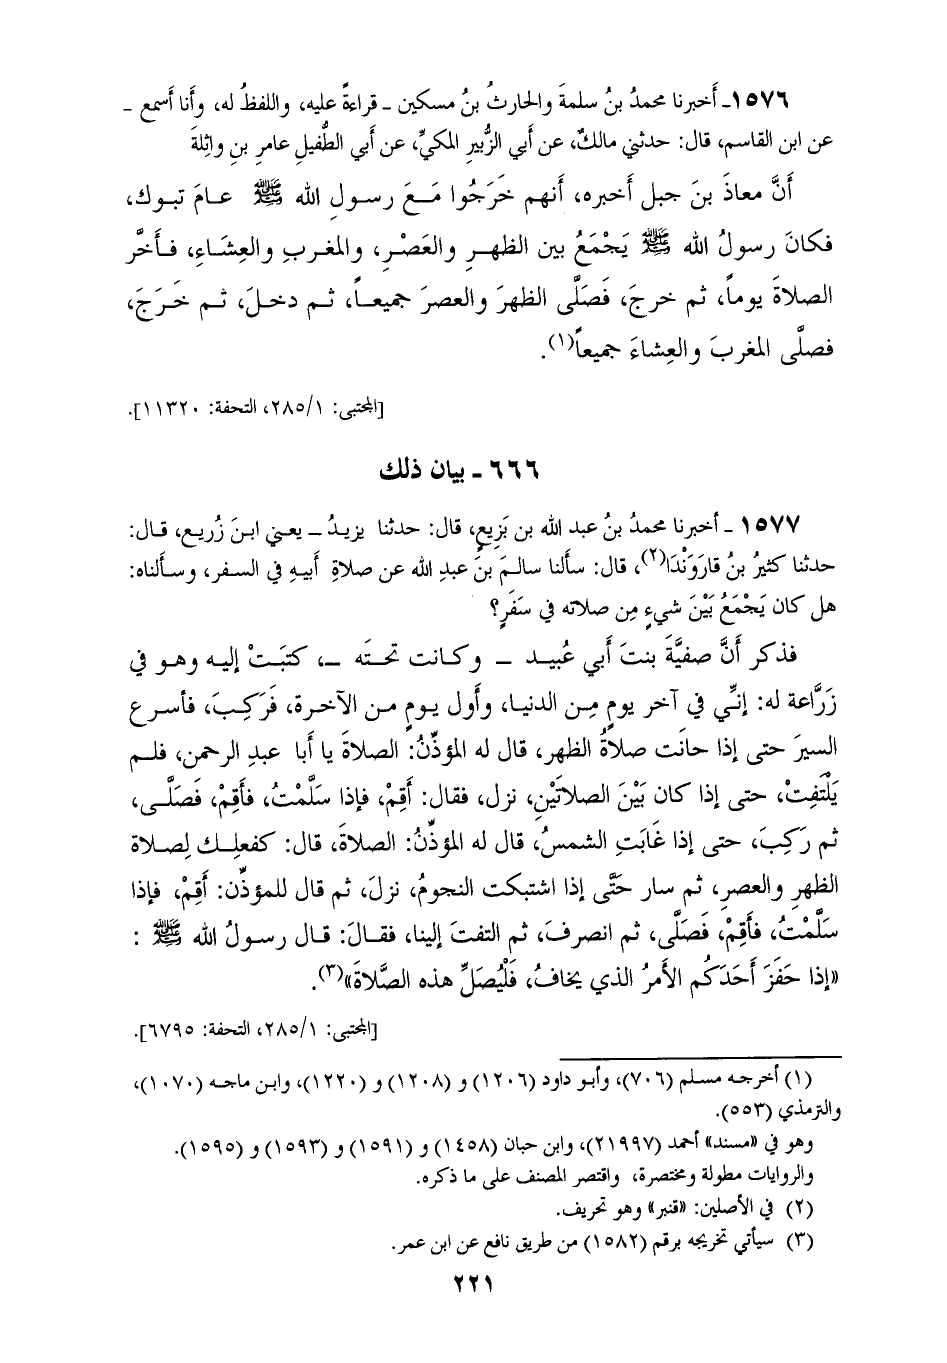 ١٥٧٦ـ أخبرنا محمدُ بنُ سلمةَ والحارثُ بنُ مسكين ـ قراءةً عليه، واللفظُ له، وأنا أسمع ـ
عن ابن القاسم، قال: حدثني مالكٌ، عن أبي الزُّبيرِ المكيِّ، عن أبي الطُّفيلِ عامرِ بنِ واثِلةَ
أنَّ معاذَ بنَ جبل أخبره، أنهم خَرَجُوا مَعَ رسولِ الله ﷺ عامَ تبوك،
فكانَ رسولُ الله ﷺ يَجْمَعُ بين الظهرِ والعَصْرِ، والمغربِ والعِشَاءِ، فأخَّر
الصلاةَ يوماً، ثم خرجَ، فَصَلَّى الظهرَ والعصرَ جميعاً، ثم دخلَ، ثم خَرَجَ،
فصلَّى المغربَ والعِشاءَ جميعاً(١).
[المجتبى: ٢٨٥/١، التحفة: ١١٣٢٠].
٦٦٦ ـ بيان ذلك
١٥٧٧ ـ أخبرنا محمدُ بنُ عبد الله بن بَزِيعٍ، قال: حدثنا يزيدُ ــ يعني ابنَ زُريع، قال:
حدثنا كثيرُ بنُ قارَوَنْدَا(٢)، قال: سألنا سالمَ بنَ عبدِ الله عن صلاةِ أبيهِ في السفر، وسألناه:
هل كان يَجْمَعُ بَيْنَ شيءٍ مِن صلاته في سَفَرٍ؟
فذكر أنَّ صفيَّةَ بنتَ أبي عُبيد ــ وكانت تحتَه ــ، كتبَتْ إليه وهو في
زَرَّاعة له: إنِّي في آخر يومٍ مِن الدنيا، وأول يومٍ من الآخرة، فَرَكِبَ، فأسرع
السيرَ حتى إذا حانَت صلاةُ الظهر، قال له المؤذِّنُ: الصلاةَ يا أبا عبدِ الرحمن، فلم
يَلْتَفِتْ، حتى إذا كان بَيْنَ الصلاتَيْنِ، نزل، فقال: أَقِمْ، فإذا سَلَّمْتُ، فأَقِمْ، فَصَلَّى،
ثم رَكِبَ، حتى إذا غَابَتِ الشمسُ، قال له المؤذِّنُ: الصلاةَ، قال: كفعلِك لِصلاة
الظهرِ والعصرِ، ثم سار حَتَّى إذا اشتبكت النجومُ، نزلَ، ثم قال للمؤذِّن: أَقِمْ، فإذا
سَلَّمْتُ، فأَقِمْ، فَصَلَّى، ثم انصرفَ، ثم التفتَ إلينا، فقالَ: قال رسولُ الله ﷺ :
«إذا حَفَزَ أَحَدَكُم الأمرُ الذي يخافُ، فَلْيُصَلِّ هذه الصَّلاةَ»(٣).
[المجتبى: ٢٨٥/١، التحفة: ٦٧٩٥].
(١) أخرجه مسلم (٧٠٦)، وأبو داود (١٢٠٦) و (١٢٠٨) و (١٢٢٠)، وابن ماجه (١٠٧٠)،
والترمذي (٥٥٣).
وهو في «مسند» أحمد (٢١٩٩٧)، وابن حبان (١٤٥٨) و (١٥٩١) و (١٥٩٣) و (١٥٩٥).
والروايات مطولة ومختصرة، واقتصر المصنف على ما ذكره.
(٢) في الأصلين: «قنبر» وهو تحريف.
(٣) سيأتي تخريجه برقم (١٥٨٢) من طريق نافع عن ابن عمر.
٢٢١